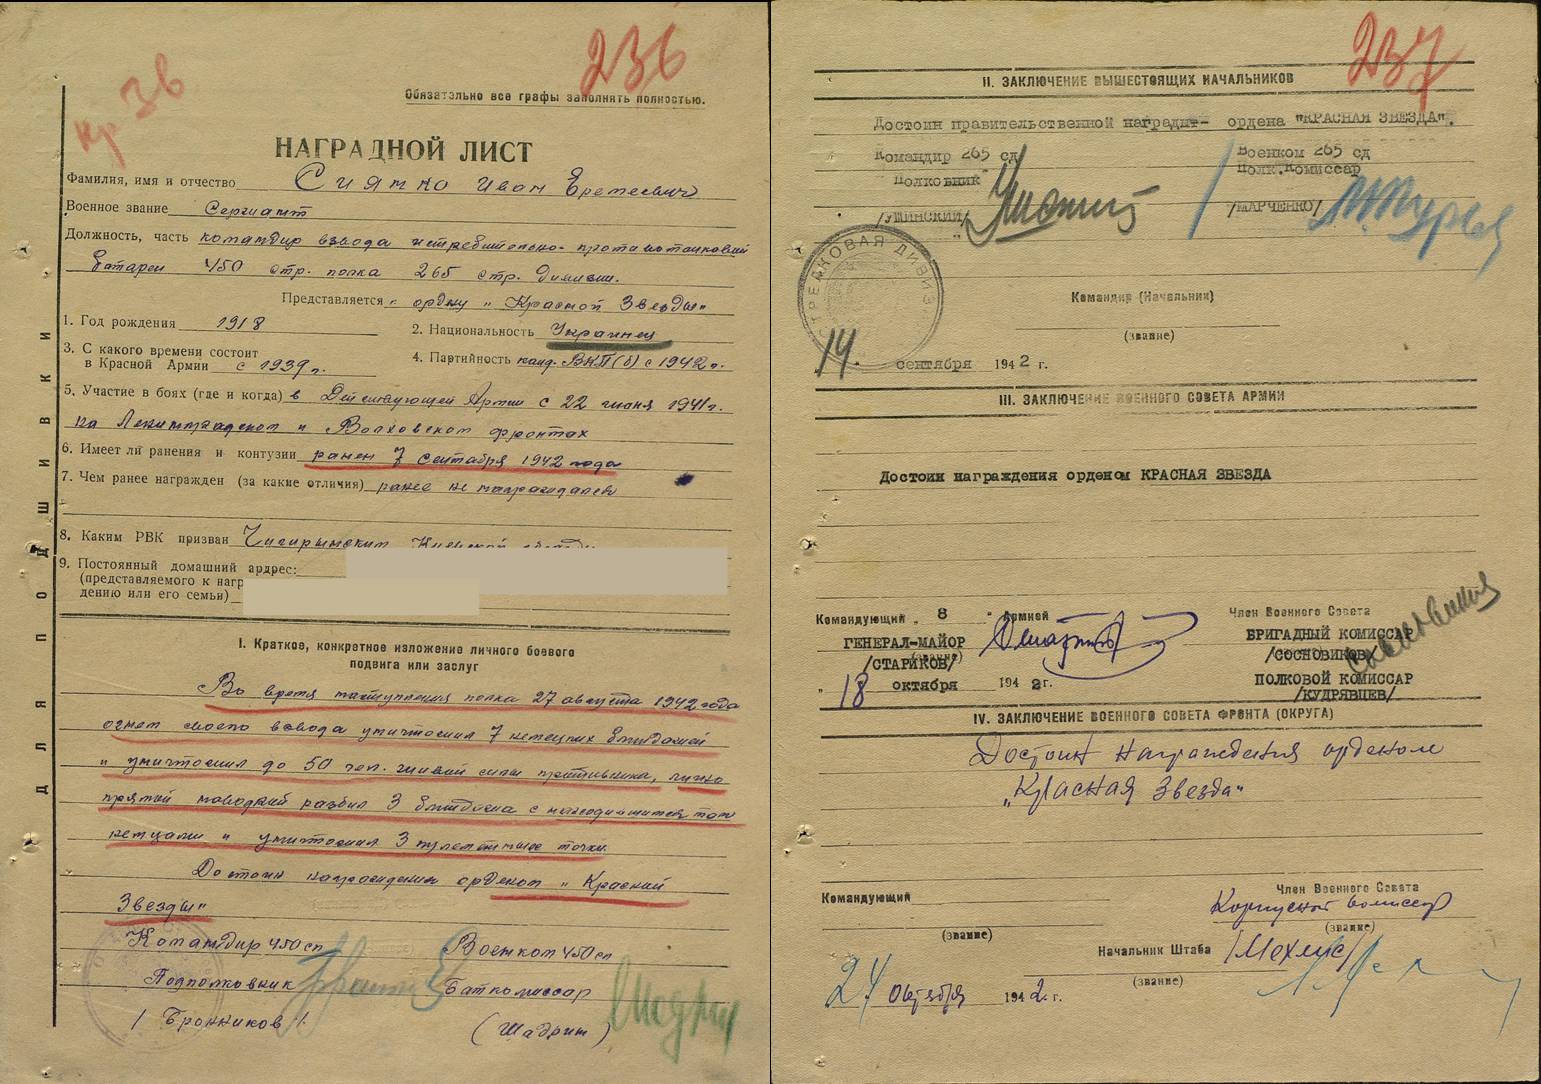 236
кр 36
Обязательно все графы заполнять полностью.
НАГРАДНОЙ ЛИСТ
Фамилия, имя и отчество Сиятко Иван Еремеевич
Военное звание Сержант
Должность, часть командир взвода истребительно-противотанковой
батареи 450 стр. полка 265 стр. дивизии.
Представляется к ордену „Красной Звезды"
1. Год рождения 1918
2. Национальность Украинец
3. С какого времени состоит
в Красной Армии с 1939 г.
4. Партийность канд. ВКП(б) с 1942 г.
5. Участие в боях (где и когда) в Действующей Армии с 22 июня 1941 г.
на Ленинградском и Волховском фронтах
6. Имеет ли ранения и контузии ранен 7 сентября 1942 года
7. Чем ранее награжден (за какие отличия) ранее не награждался
8. Каким РВК призван Чигиринским Киевской области
9. Постоянный домашний ардрес:
(представляемого к наг
дению или его семьи)
I. Краткое, конкретное изложение личного боевого
подвига или заслуг
Во время наступления полка 27 августа 1942 года
огнем своего взвода уничтожил 7 немецких блиндажей
и уничтожил до 50 чел. живой силы противника, лично
прямой наводкой разбил 3 блиндажа с находившимися там
немцами и уничтожил 3 пулеметные точки.
Достоин награждения орденом „Красной
Звезды"
Командир 450 сп Военком 450 сп
Подполковник Баткомиссар
/Бронников/ (Шадрин)
ДЛЯ ПОДШИВКИ
237
II. ЗАКЛЮЧЕНИЕ ВЫШЕСТОЯЩИХ НАЧАЛЬНИКОВ
Достоин правительственной наградить- ордена "КРАСНАЯ ЗВЕЗДА".
Командир 265 сд Военком 265 сд
Полковник Полк.Комиссар
/УШИНСКИЙ/ /МАРЧЕНКО/
СТРЕЛКОВАЯ ДИВИЗ
Командир (Начальник)
(звание)
14. сентября 1942 г.
III. ЗАКЛЮЧЕНИЕ ВОЕННОГО СОВЕТА АРМИИ
Достоин награждения орденом КРАСНАЯ ЗВЕЗДА
Командующий „ 8 " Армией Член Военного Совета
ГЕНЕРАЛ-МАЙОР БРИГАДНЫЙ КОМИССАР
(звание)
/СТАРИКОВ/ /СОСНОВИКОВ/
ПОЛКОВОЙ КОМИССАР
„ 18 октября 1942 г. /КУДРЯВЦЕВ/
IV. ЗАКЛЮЧЕНИЕ ВОЕННОГО СОВЕТА ФРОНТА (ОКРУГА)
Достоин награждения орденом
„Красная Звезда"
Командующий Член Военного Совета
Корпусной комиссар
(звание) (звание)
Начальник Штаба /Мехлис/
(звание)
24 октября 1942 г.